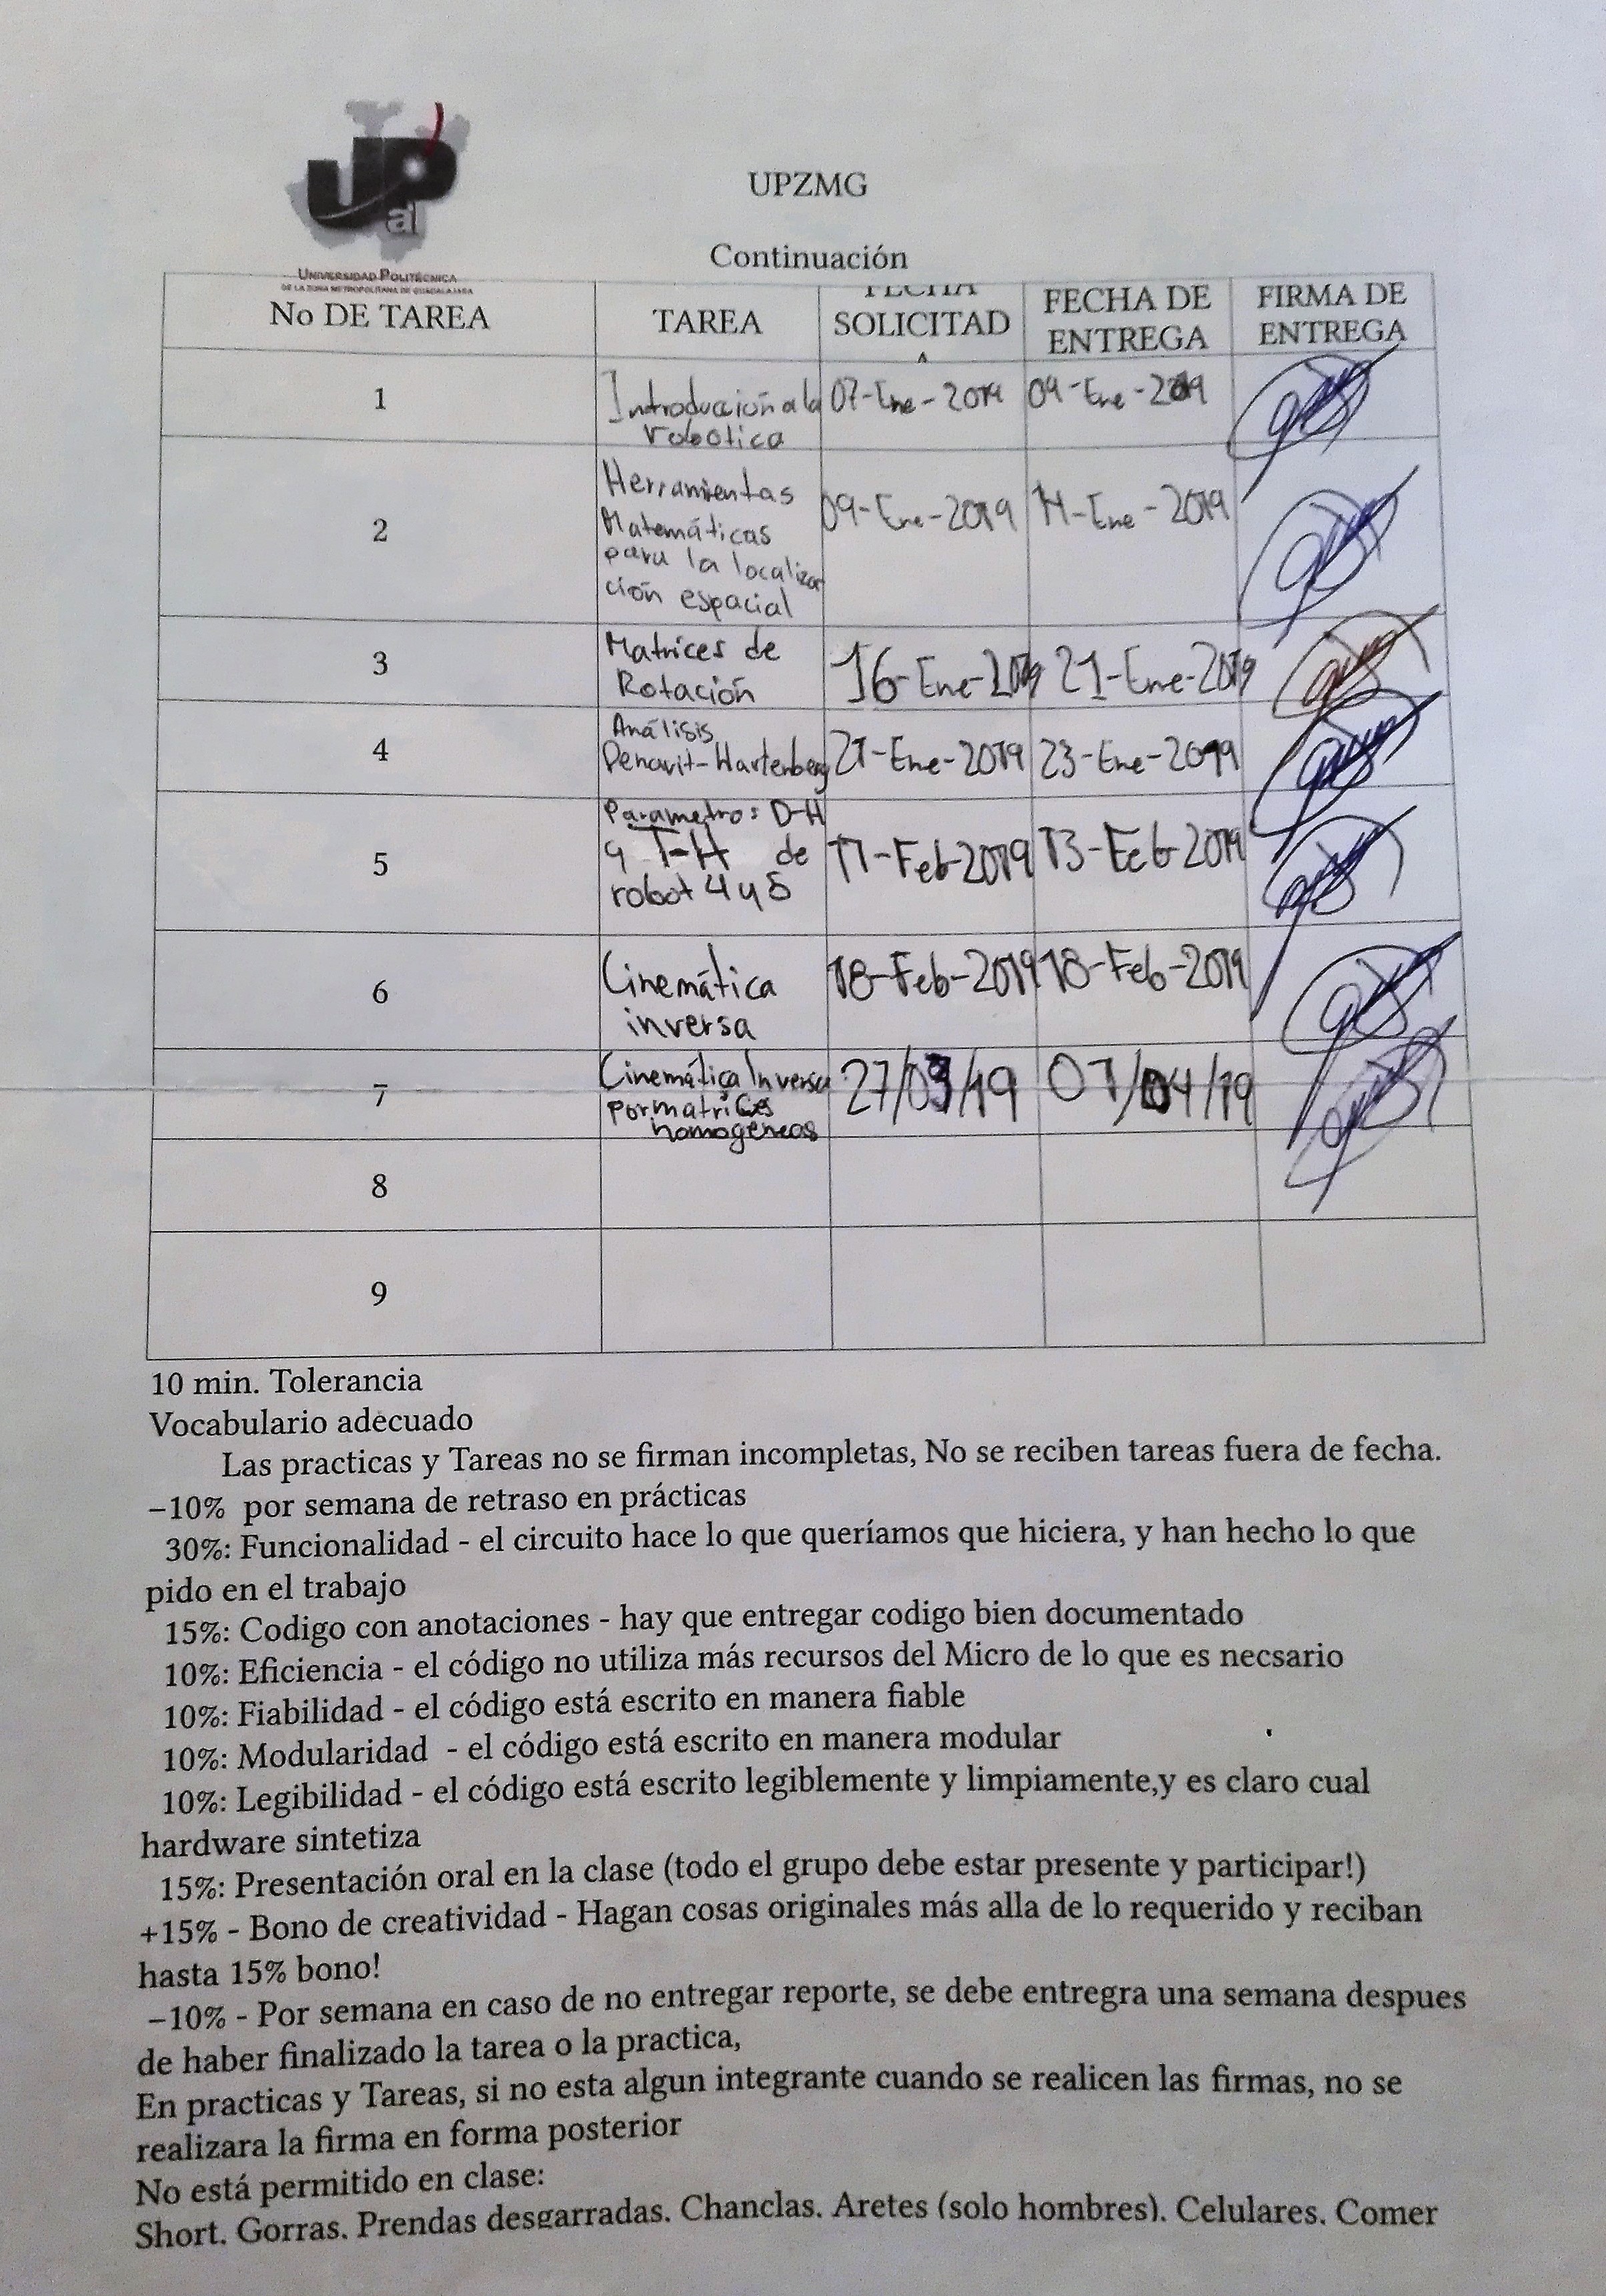 UPal
UNIVERSIDAD POLITÉCNICA
DE LA ZONA METROPOLITANA DE GUADALAJARA
UPZMG
Continuación
No DE TAREA TAREA FECHA SOLICITADA FECHA DE ENTREGA FIRMA DE ENTREGA
1 Introducción a la 07-Ene-2019 09-Ene-2019
robotica
2 Herramientas 09-Ene-2019 14-Ene-2019
Matemáticas
para la localiza
ción espacial
3 Matrices de 16-Ene-2019 21-Ene-2019
Rotación
4 Análisis
Denavit-Hartenberg 21-Ene-2019 23-Ene-2019
5 Parametros D-H
y T-H de 11-Feb-2019 13-Feb-2019
robot 4 y 5
6 Cinemática 18-Feb-2019 18-Feb-2019
inversa
7 Cinemática Inversa 27/03/19 01/04/19
por matrices
homogéneas
8
9
10 min. Tolerancia
Vocabulario adecuado
Las practicas y Tareas no se firman incompletas, No se reciben tareas fuera de fecha.
–10% por semana de retraso en prácticas
30%: Funcionalidad - el circuito hace lo que queríamos que hiciera, y han hecho lo que
pido en el trabajo
15%: Codigo con anotaciones - hay que entregar codigo bien documentado
10%: Eficiencia - el código no utiliza más recursos del Micro de lo que es necsario
10%: Fiabilidad - el código está escrito en manera fiable
10%: Modularidad - el código está escrito en manera modular
10%: Legibilidad - el código está escrito legiblemente y limpiamente,y es claro cual
hardware sintetiza
15%: Presentación oral en la clase (todo el grupo debe estar presente y participar!)
+15% - Bono de creatividad - Hagan cosas originales más alla de lo requerido y reciban
hasta 15% bono!
–10% - Por semana en caso de no entregar reporte, se debe entregra una semana despues
de haber finalizado la tarea o la practica,
En practicas y Tareas, si no esta algun integrante cuando se realicen las firmas, no se
realizara la firma en forma posterior
No está permitido en clase:
Short. Gorras. Prendas desgarradas. Chanclas. Aretes (solo hombres). Celulares. Comer